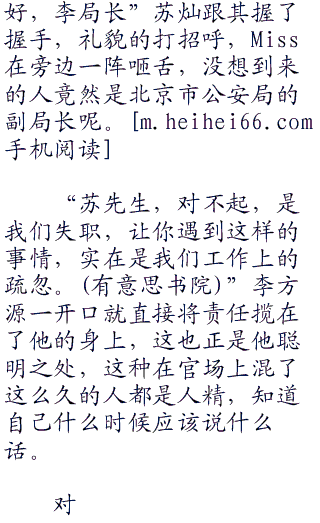 好，李局长”苏灿跟其握了
握手，礼貌的打招呼，Miss
在旁边一阵咂舌，没想到来
的人竟然是北京市公安局的
副局长呢。[m.heihei66.com
手机阅读]
“苏先生，对不起，是
我们失职，让你遇到这样的
事情，实在是我们工作上的
疏忽。(有意思书院)”李方
源一开口就直接将责任揽在
了他的身上，这也正是他聪
明之处，这种在官场上混了
这么久的人都是人精，知道
自己什么时候应该说什么
话。
对